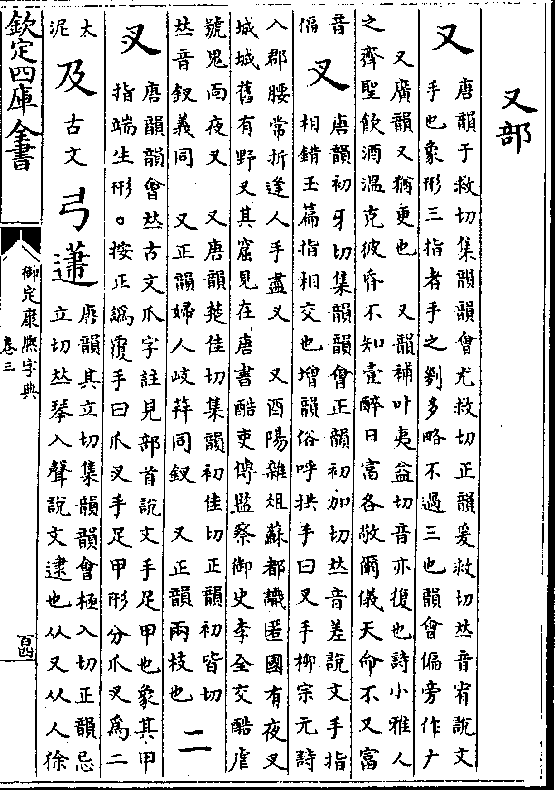 又部
又
唐韻于救切集韻韻會尤救切正韻爰救切𠀤音宥說文
手也象形三指者手之列多略不過三也韻會偏旁作ナ
又廣韻又猶更也　又韻補叶夷益切音亦復也詩小雅人
之齊聖飲酒溫克彼昏不知壹醉日富各敬爾儀天命不又富
音
偪
叉
唐韻初牙切集韻韻會正韻初加切𠀤音差說文手指
相錯玉篇指相交也增韻俗呼拱手曰叉手柳宗元詩
入郡腰常折逢人手盡叉　又酉陽雜俎蘇都識匿國有夜叉
城城舊有野叉其窟見在唐書酷吏傳監察御史李全交酷虐
號鬼面夜叉　又唐韻楚佳切集韻初佳切正韻初皆切
𠀤音釵義同　又正韻婦人岐筓同釵　又正韻兩枝也
二
㕚
唐韻韻會𠀤古文爪字註見部首說文手足甲也象其甲
指端生形。按正譌覆手曰爪㕚手足甲形分爪㕚爲二
太
泥
及
古文
弓
唐韻其立切集韻韻會極入切正韻忌
立切𠀤琴入聲說文逮也从又从人徐
欽定四庫全書
御定康熙字典
卷三